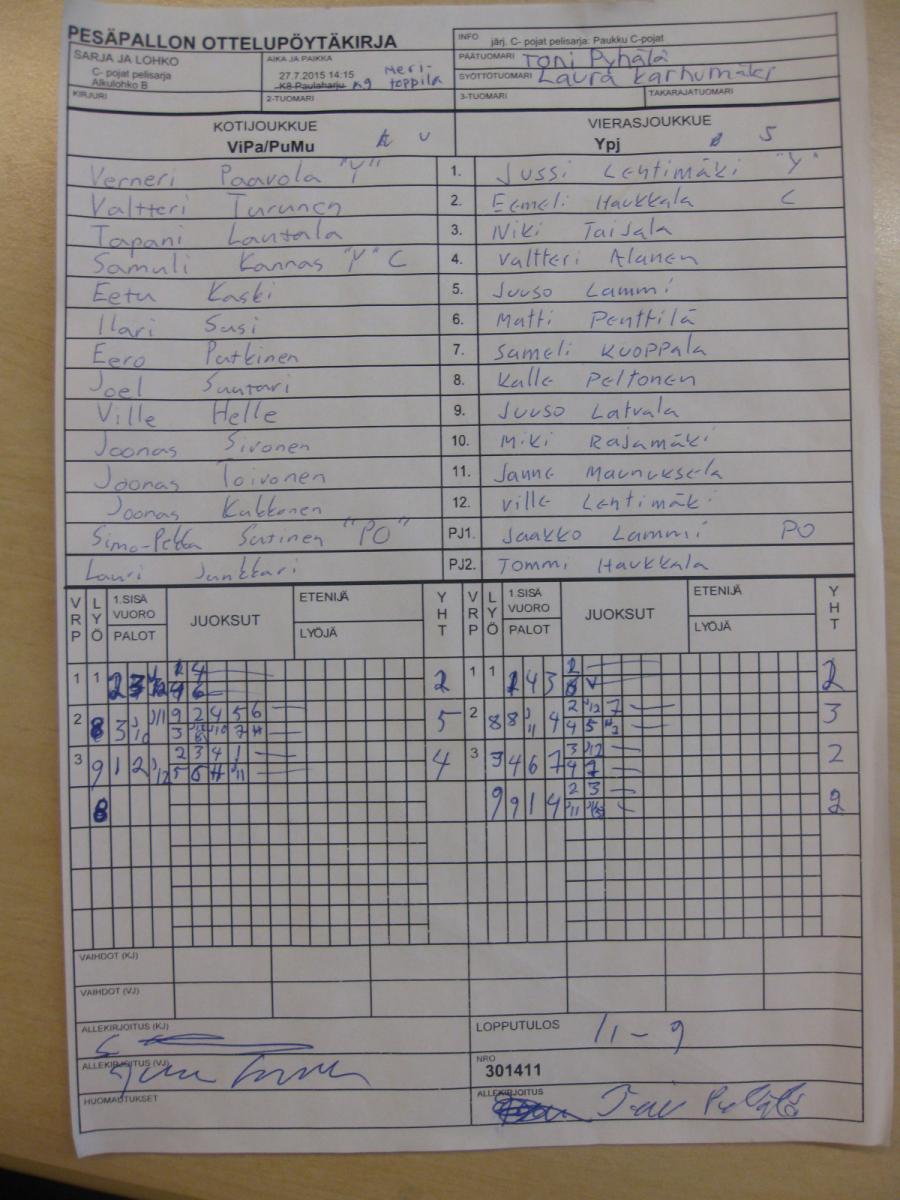 PESÄPALLON OTTELUPÖYTÄKIRJA
INFO järj. C- pojat pelisarja: Paukku C-pojat
PÄÄTUOMARI Toni Pyhälä
SYÖTTÖTUOMARI Laura Karhumäki
SARJA JA LOHKO
C- pojat pelisarja
Alkulohko B
AIKA JA PAIKKA
27.7.2015 14:15
K8 Paulaharju Meri-toppila
KIRJURI 2-TUOMARI 3-TUOMARI TAKARAJATUOMARI
KOTIJOUKKUE VIERASJOUKKUE
ViPa/PuMu U Ypj S
Verneri Paavola "Y" 1. Jussi Lehtimäki "Y"
Valtteri Turunen 2. Eemeli Haukkala C
Tapani Lautala 3. Niki Taijala
Samuli Kannas "Y" C 4. Valtteri Alanen
Eetu Kaski 5. Juuso Lammi
Ilari Susi 6. Matti Penttilä
Eero Putkinen 7. Sameli Kuoppala
Joel Suutari 8. Kalle Peltonen
Ville Helle 9. Juuso Latvala
Joonas Sivonen 10. Miki Rajamäki
Joonas Toivonen 11. Janne Maunuksela
Joonas Kukkonen 12. Ville Lehtimäki
Simo-Pekka Sutinen "PO" PJ1. Jaakko Lammi PO
Lauri Junkkari PJ2. Tommi Haukkala
VRP LYÖ 1.SISÄ VUORO PALOT JUOKSUT ETENIJÄ LYÖJÄ YHT VRP LYÖ 1.SISÄ VUORO PALOT JUOKSUT ETENIJÄ LYÖJÄ YHT
1 1 2 4 2 1 1 2 4 3 2 2
2 8 3 9 2 4 5 6 5 2 8 8 4 2 7 3
3 9 1 2 2 3 4 1 4 3 3 4 6 7 2
8 9 9 1 4 2 3 2
VAIHDOT (KJ)
VAIHDOT (VJ)
ALLEKIRJOITUS (KJ) LOPPUTULOS 11-9
ALLEKIRJOITUS (VJ) NRO
301411
HUOMAUTUKSET ALLEKIRJOITUS Toni Pyhälä